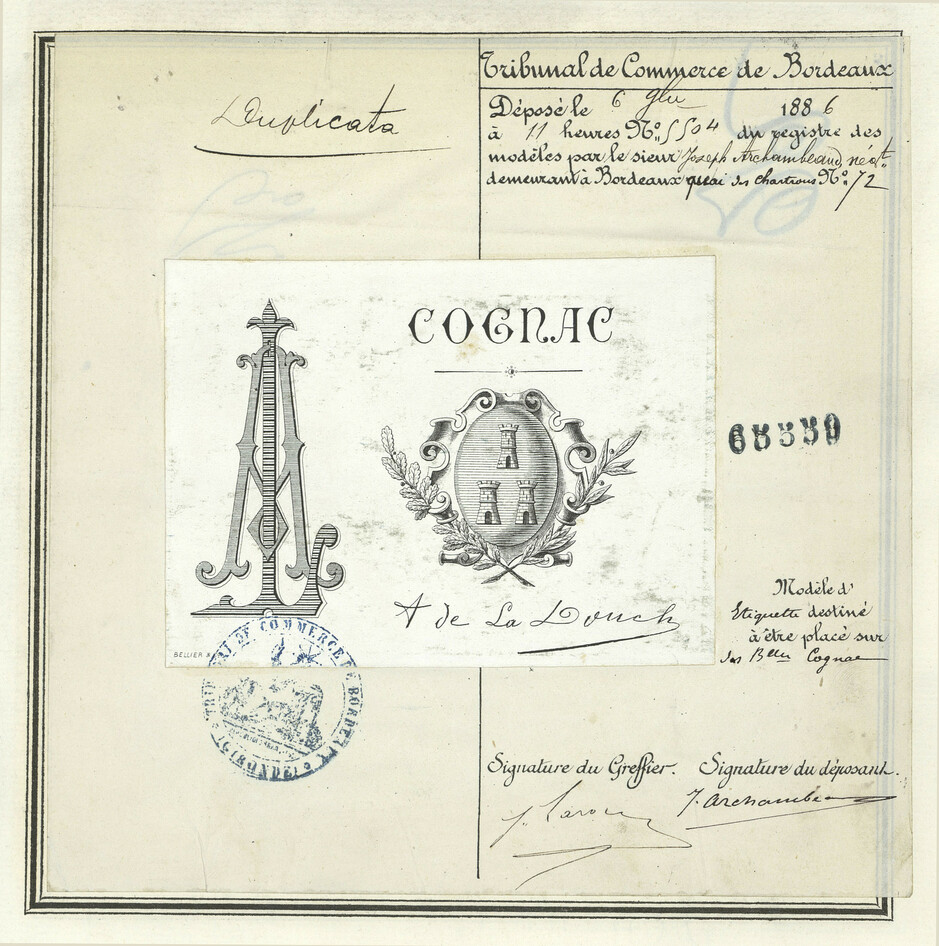 Duplicata
Tribunal de Commerce de Bordeaux
Déposé le 6 1886
à 11 heures No. 5504 du registre des
modèles par le sieur Joseph Archambeaud, négt.
demeurant à Bordeaux quai des Chartrons No. 72
COGNAC
A de La Douch
BELLIER
65559
Modèle d'
Etiquette destiné
à être placé sur
des Blles Cognac
TRIBUNAL DE COMMERCE DE BORDEAUX
(GIRONDE)
Signature du Greffier. Signature du déposant.
J. Archambeau